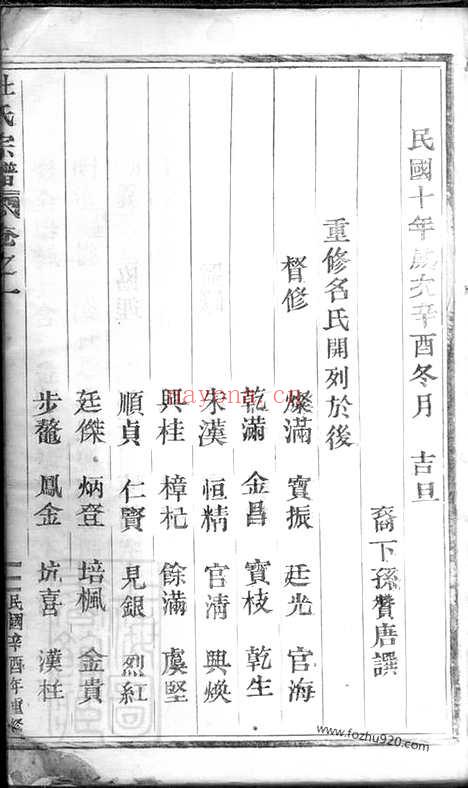 民國十年歲次辛酉冬月 吉旦
裔下孫贊唐譔
重修名氏開列於後
督修 燦滿 寶振 廷光 官海
乾滿 金昌 寶枝 乾生
朱漢 恒精 官清 興煥
興桂 樟杞 餘滿 虞堅
順貞 仁賢 見銀 烈紅
廷傑 炳登 培楓 金貴
步鼇 鳳金 坑喜 漢柱
杜氏宗譜 卷之一
民國辛酉年重修
nayona.cn
www.fozhu920.com